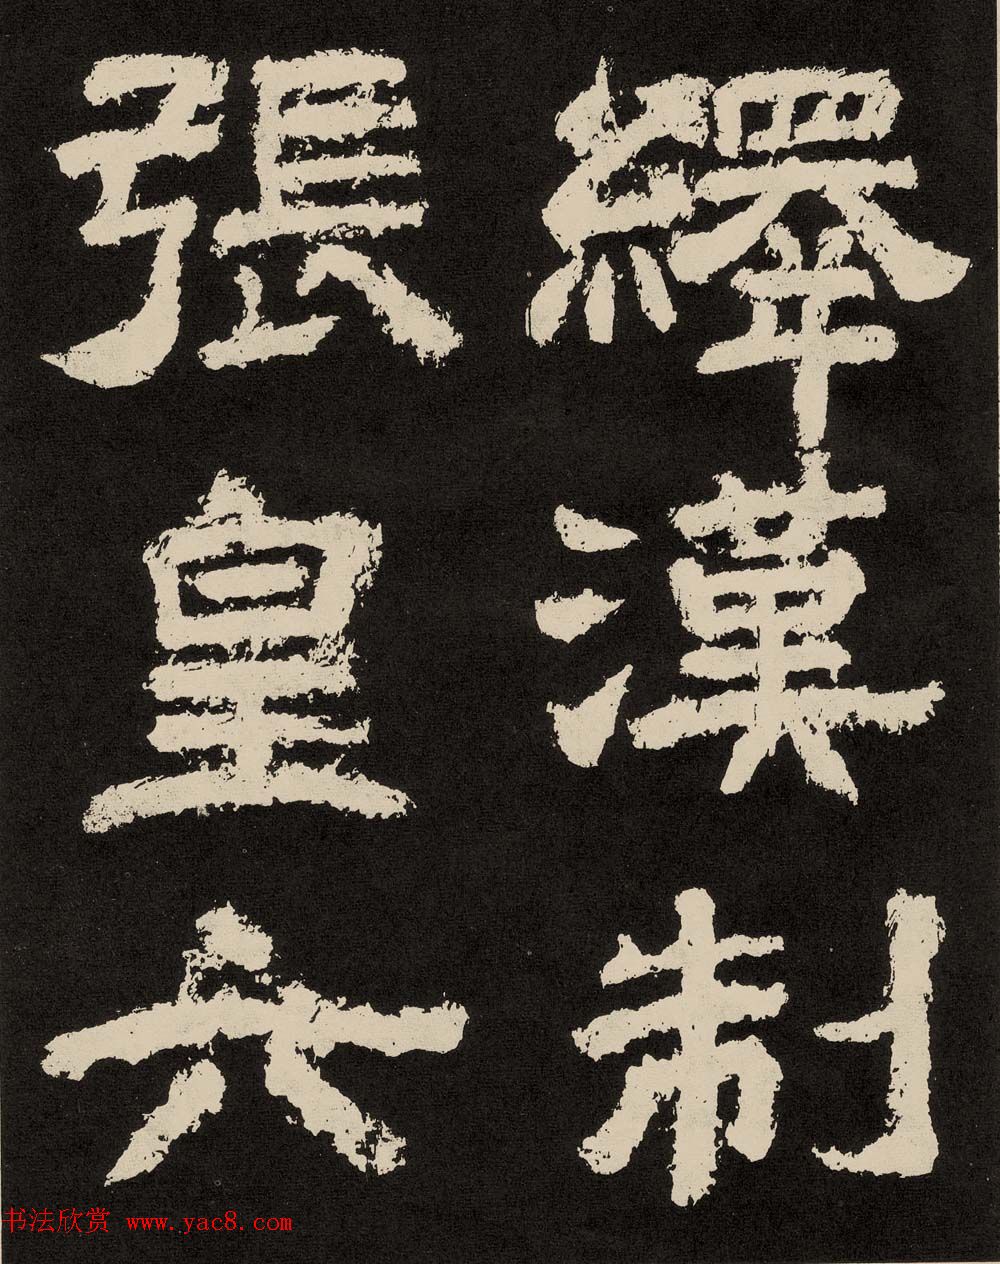 繹漢制
張皇六
书法欣赏 www.yac8.com